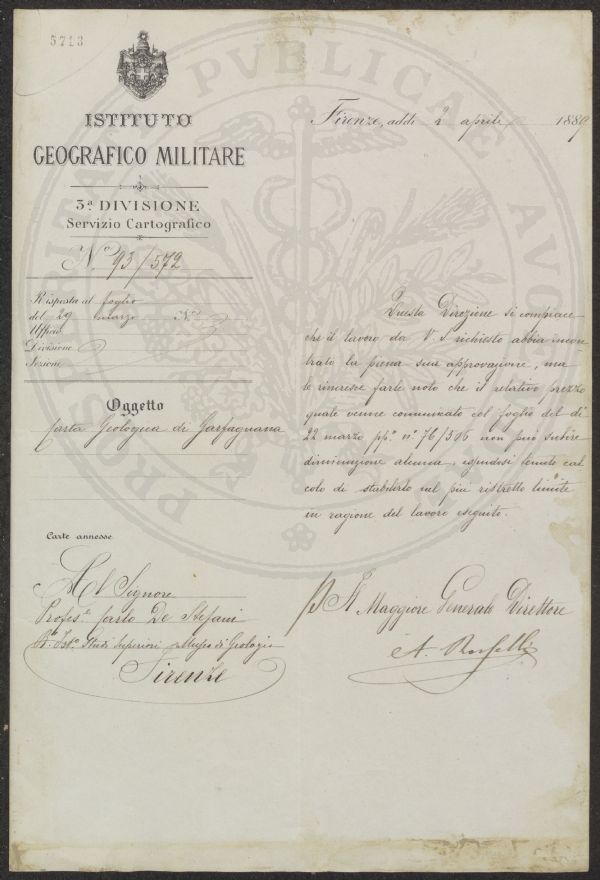 5713
ISTITUTO
GEOGRAFICO MILITARE
3ª DIVISIONE
Servizio Cartografico
N° 93/572
Risposta al foglio
del 29 marzo N°
Ufficio
Divisione
Sezione
Oggetto
Carta Geologica di Garfagnana
Carte annesse
Al Signore
Profes.re Carlo De Stefani
R.° Ist.° Studi Superiori Museo di Geologia
Firenze
Firenze, addì 2 aprile 1889
Questa Direzione si compiace
che il lavoro da V. S. richiesto abbia incon
trato la piena sua approvazione, ma
le rincresce farle noto che il relativo prezzo
quale venne comunicato col foglio del dì
22 marzo pp.° n.° 76/306 non può subire
diminuzione alcuna, essendosi tenuto cal
colo di stabilirlo nel più ristretto limite
in ragione del lavoro eseguito.
Il Maggiore Generale Direttore
A.